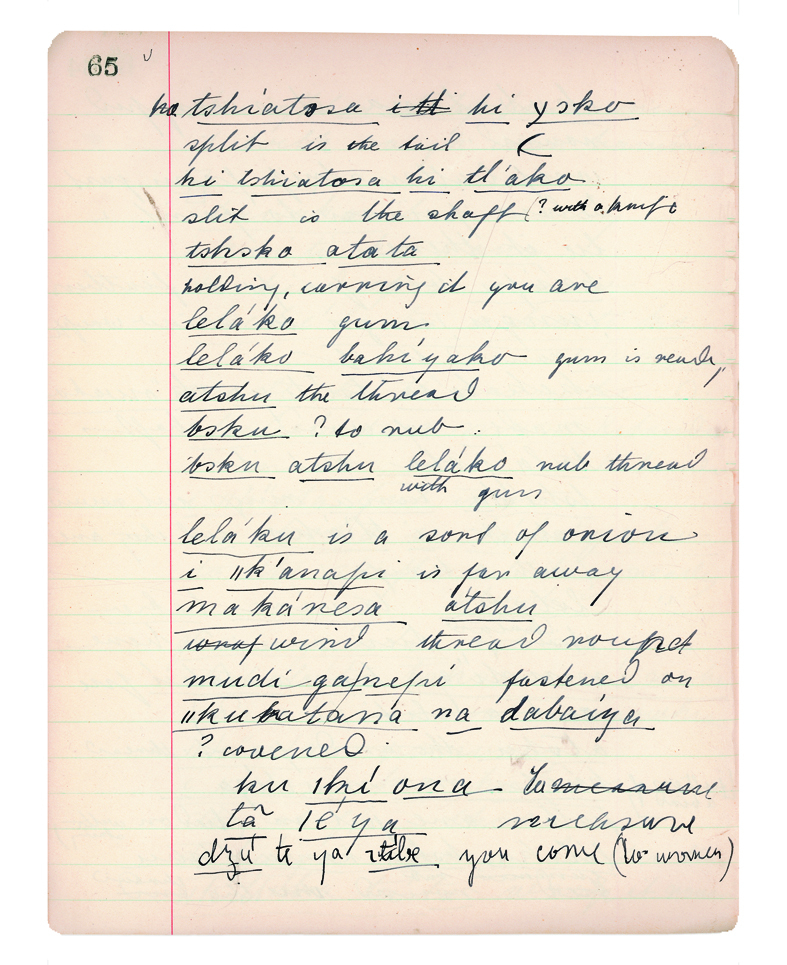 65
ha tshiatosa i tt hi ysko
split is the tail
hi tshiatosa hi tl'ako
slit is the shaft (? with a knife
tshsko atata
holding, carrying it you are
leláko gum
leláko bahíyako gum is ready
atshu the thread
bsku ? to rub.
bsku atshu leláko rub thread
with gum
leláku is a sort of onion
i "k'anapi is far away
makánesa átshu
wrap wind thread round
mudi ganepi fastened on
"kukatana na dabaiya
? covered
ku ona to measure
tã measure
dzú te ya you come (to women)